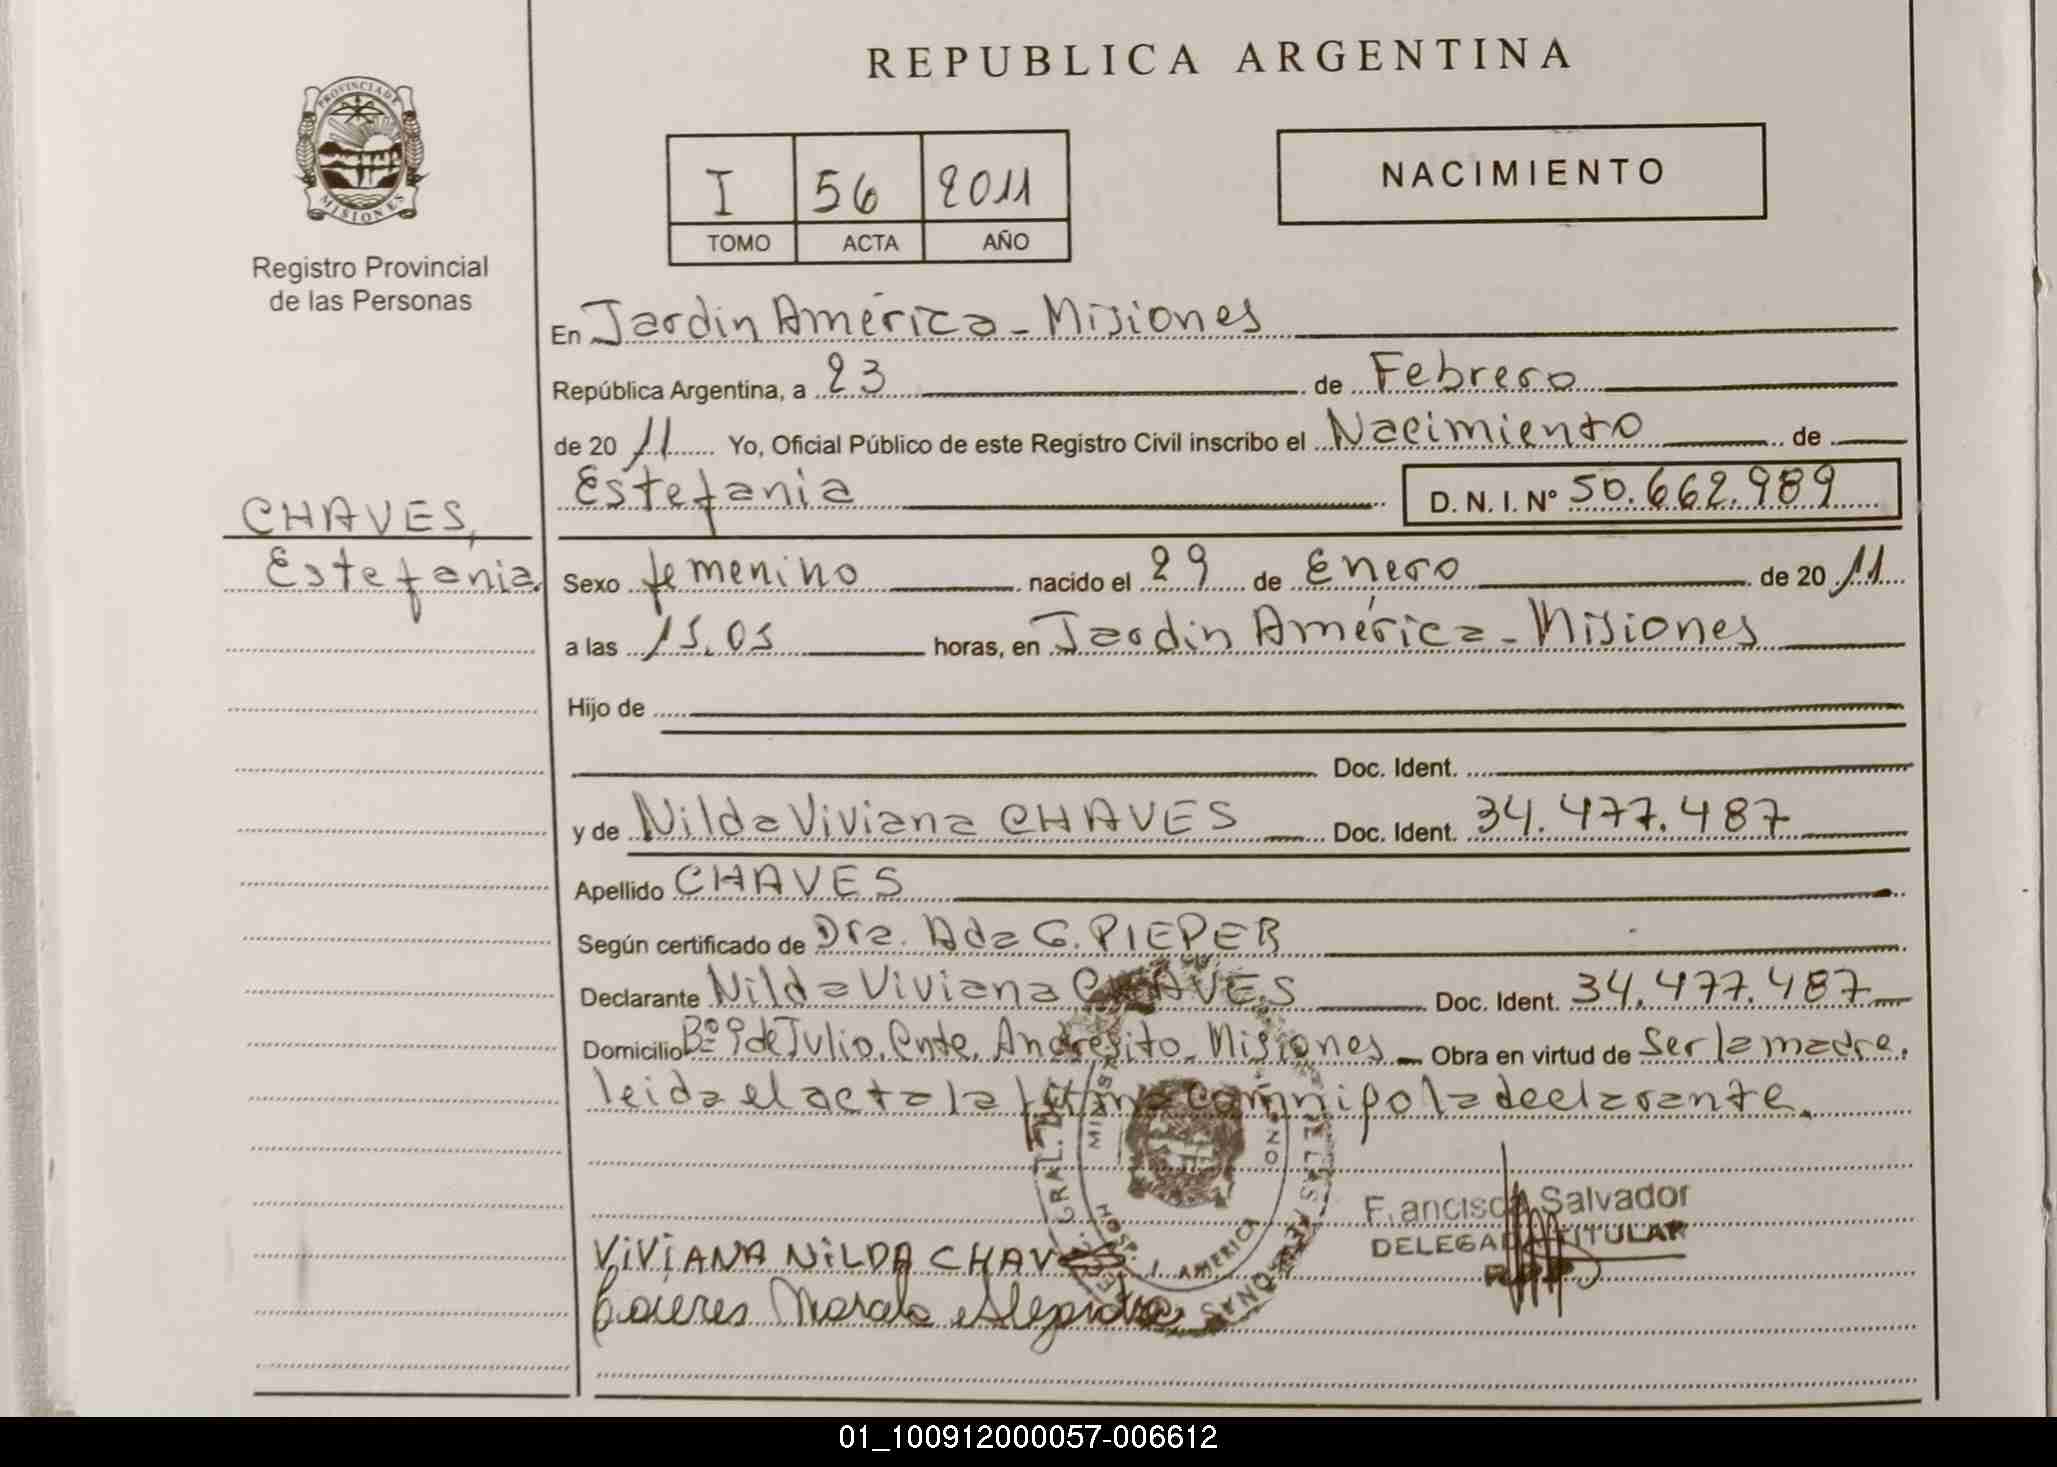 REPUBLICA ARGENTINA
PROVINCIA DE
MISIONES
Registro Provincial
de las Personas
I 56 2011
TOMO ACTA AÑO
NACIMIENTO
En Jardin América - Misiones
República Argentina, a 23 de Febrero
de 20 11 Yo, Oficial Público de este Registro Civil inscribo el Nacimiento de
Estefania D. N. I. Nº 50.662.989
CHAVES,
Estefania.
Sexo femenino nacido el 29 de Enero de 20 11
a las 15.05 horas, en Jardin América - Misiones
Hijo de
Doc. Ident.
y de Nilda Viviana CHAVES Doc. Ident. 34.477.487
Apellido CHAVES
Según certificado de Dra. Ada G. PIEPER
Declarante Nilda Viviana CHAVES Doc. Ident. 34.477.487
Domicilio Bº 9 de Julio. Cnte. Andresito. Misiones Obra en virtud de Ser la madre.
leida el acta la firma conmigo la declarante.
Francisca Salvador
DELEGADA TITULAR
R.P.P
VIVIANA NILDA CHAVES
HOSP. J. AMERICA
01_100912000057-006612